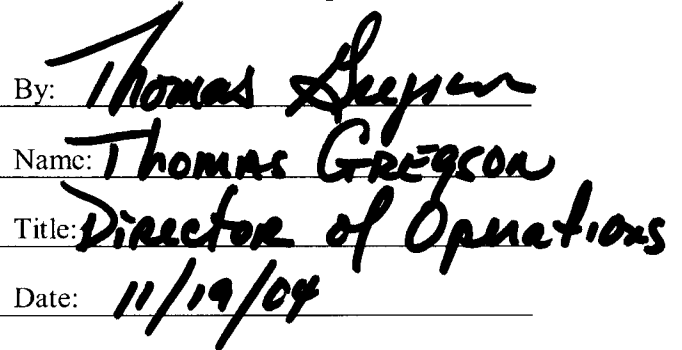 By: Thomas Gregson
Name: Thomas GREGSON
Title: Director of Operations
Date: 11/19/04